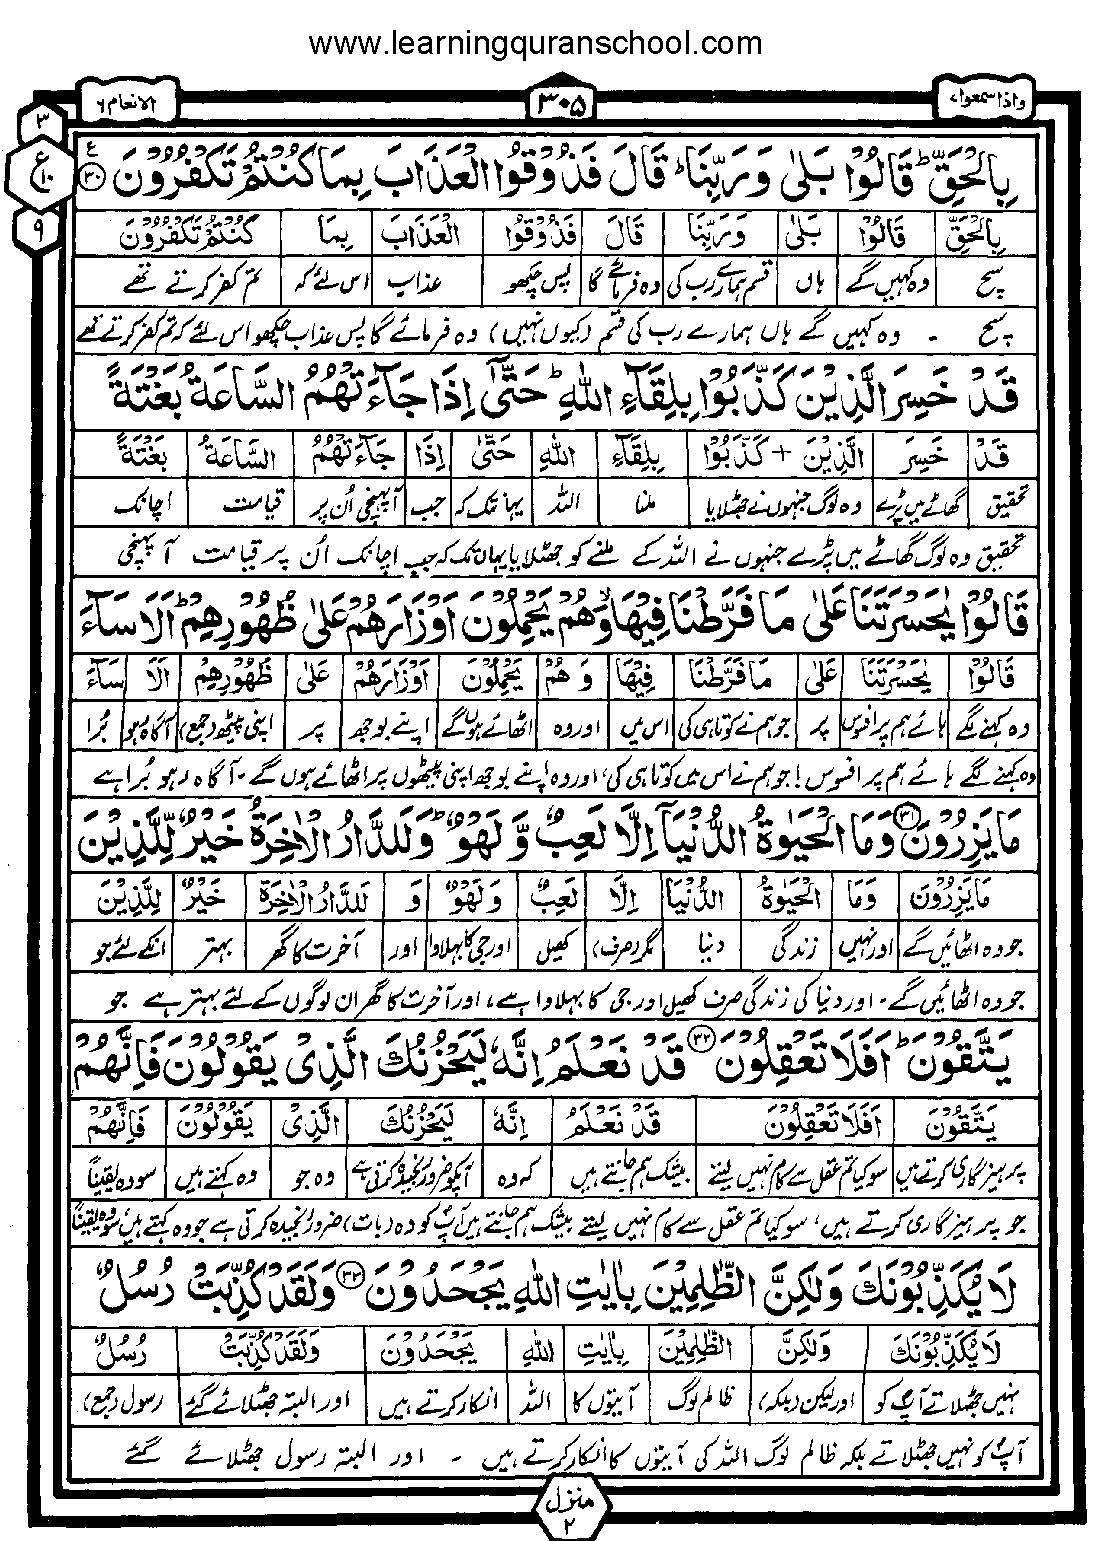 www.learningquranschool.com
واذا سمعوا ۷ ۳۰۵ الانعام ٦
۳
ع
۱۰
۹
بِالْحَقِّ ؕ قَالُوْا بَلٰى وَ رَبِّنَا ؕ قَالَ فَذُوْقُوا الْعَذَابَ بِمَا كُنْتُمْ تَكْفُرُوْنَ ﴿۳۰﴾ ع
بِالْحَقِّ قَالُوْا بَلٰى وَرَبِّنَا قَالَ فَذُوْقُوْا الْعَذَابَ بِمَا كُنْتُمْ تَكْفُرُوْنَ
سچ وہ کہیں گے ہاں قسم ہمارے رب کی وہ فرمائے گا پس چکھو عذاب اس لئے کہ تم کفر کرتے تھے
سچ - وہ کہیں گے ہاں ہمارے رب کی قسم (کیوں نہیں) وہ فرمائے گا پس عذاب چکھو اس لئے کہ تم کفر کرتے تھے
قَدْ خَسِرَ الَّذِيْنَ كَذَّبُوْا بِلِقَآءِ اللّٰهِ ؕ حَتّٰۤى اِذَا جَآءَتْهُمُ السَّاعَةُ بَغْتَةً
قَدْ خَسِرَ الَّذِيْنَ + كَذَّبُوْا بِلِقَآءِ اللّٰهِ حَتّٰى اِذَا جَآءَتْهُمُ السَّاعَةُ بَغْتَةً
تحقیق گھاٹے میں پڑے وہ لوگ جنہوں نے جھٹلایا ملنا اللہ یہانتک کہ جب آپہنچی اُن پر قیامت اچانک
تحقیق وہ لوگ گھاٹے میں پڑے جنہوں نے اللہ کے ملنے کو جھٹلایا یہاں تک کہ جب اچانک اُن پر قیامت آ پہنچی
قَالُوْا يٰحَسْرَتَنَا عَلٰى مَا فَرَّطْنَا فِيْهَا ۙ وَهُمْ يَحْمِلُوْنَ اَوْزَارَهُمْ عَلٰى ظُهُوْرِهِمْ ؕ اَلَا سَآءَ
قَالُوْا يٰحَسْرَتَنَا عَلٰى مَا فَرَّطْنَا فِيْهَا وَ هُمْ يَحْمِلُوْنَ اَوْزَارَهُمْ عَلٰى ظُهُوْرِهِمْ اَلَا سَآءَ
وہ کہنے لگے ہائے ہم پر افسوس پر جو ہم نے کوتاہی کی اس میں اور وہ اٹھائے ہوں گے اپنے بوجھ پر اپنی پیٹھ (جمع) آگاہ رہو بُرا
وہ کہنے لگے ہائے ہم پر افسوس! جو ہم نے اس میں کوتاہی کی، اور وہ اپنے بوجھ اپنی پیٹھوں پر اٹھائے ہوں گے - آگاہ رہو بُرا ہے
مَا يَزِرُوْنَ ﴿۳۱﴾ وَمَا الْحَيٰوةُ الدُّنْيَاۤ اِلَّا لَعِبٌ وَّ لَهْوٌ ؕ وَ لَلدَّارُ الْاٰخِرَةُ خَيْرٌ لِّلَّذِيْنَ
مَا يَزِرُوْنَ وَمَا الْحَيٰوةُ الدُّنْيَا اِلَّا لَعِبٌ وَلَهْوٌ وَ لَلدَّارُ الْاٰخِرَةُ خَيْرٌ لِلَّذِيْنَ
جو وہ اٹھائیں گے اور نہیں زندگی دنیا مگر (صرف) کھیل اور جی کا بہلاوا اور آخرت کا گھر بہتر انکے لئے جو
جو وہ اٹھائیں گے - اور دنیا کی زندگی صرف کھیل اور جی کا بہلاوا ہے، اور آخرت کا گھر ان لوگوں کے لئے بہتر ہے جو
يَتَّقُوْنَ ؕ اَفَلَا تَعْقِلُوْنَ ﴿۳۲﴾ قَدْ نَعْلَمُ اِنَّهٗ لَيَحْزُنُكَ الَّذِيْ يَقُوْلُوْنَ فَاِنَّهُمْ
يَتَّقُوْنَ اَفَلَا تَعْقِلُوْنَ قَدْ نَعْلَمُ اِنَّهٗ لَيَحْزُنُكَ الَّذِيْ يَقُوْلُوْنَ فَاِنَّهُمْ
پرہیزگاری کرتے ہیں سو کیا تم عقل سے کام نہیں لیتے بیشک ہم جانتے ہیں کہ وہ آپکو ضرور رنجیدہ کرتی ہے وہ جو وہ کہتے ہیں سو وہ یقیناً
جو پرہیزگاری کرتے ہیں، سو کیا تم عقل سے کام نہیں لیتے بیشک ہم جانتے ہیں آپ کو وہ (بات) ضرور رنجیدہ کرتی ہے جو وہ کہتے ہیں، سو وہ یقیناً
لَا يُكَذِّبُوْنَكَ وَلٰكِنَّ الظّٰلِمِيْنَ بِاٰيٰتِ اللّٰهِ يَجْحَدُوْنَ ﴿۳۳﴾ وَلَقَدْ كُذِّبَتْ رُسُلٌ
لَا يُكَذِّبُوْنَكَ وَلٰكِنَّ الظّٰلِمِيْنَ بِاٰيٰتِ اللّٰهِ يَجْحَدُوْنَ وَلَقَدْ كُذِّبَتْ رُسُلٌ
نہیں جھٹلاتے آپ کو اور لیکن (بلکہ) ظالم لوگ آیتوں کا اللہ انکار کرتے ہیں اور البتہ جھٹلائے گئے رسول (جمع)
آپ کو نہیں جھٹلاتے بلکہ ظالم لوگ اللہ کی آیتوں کا انکار کرتے ہیں - اور البتہ رسول جھٹلائے گئے
منزل
۲